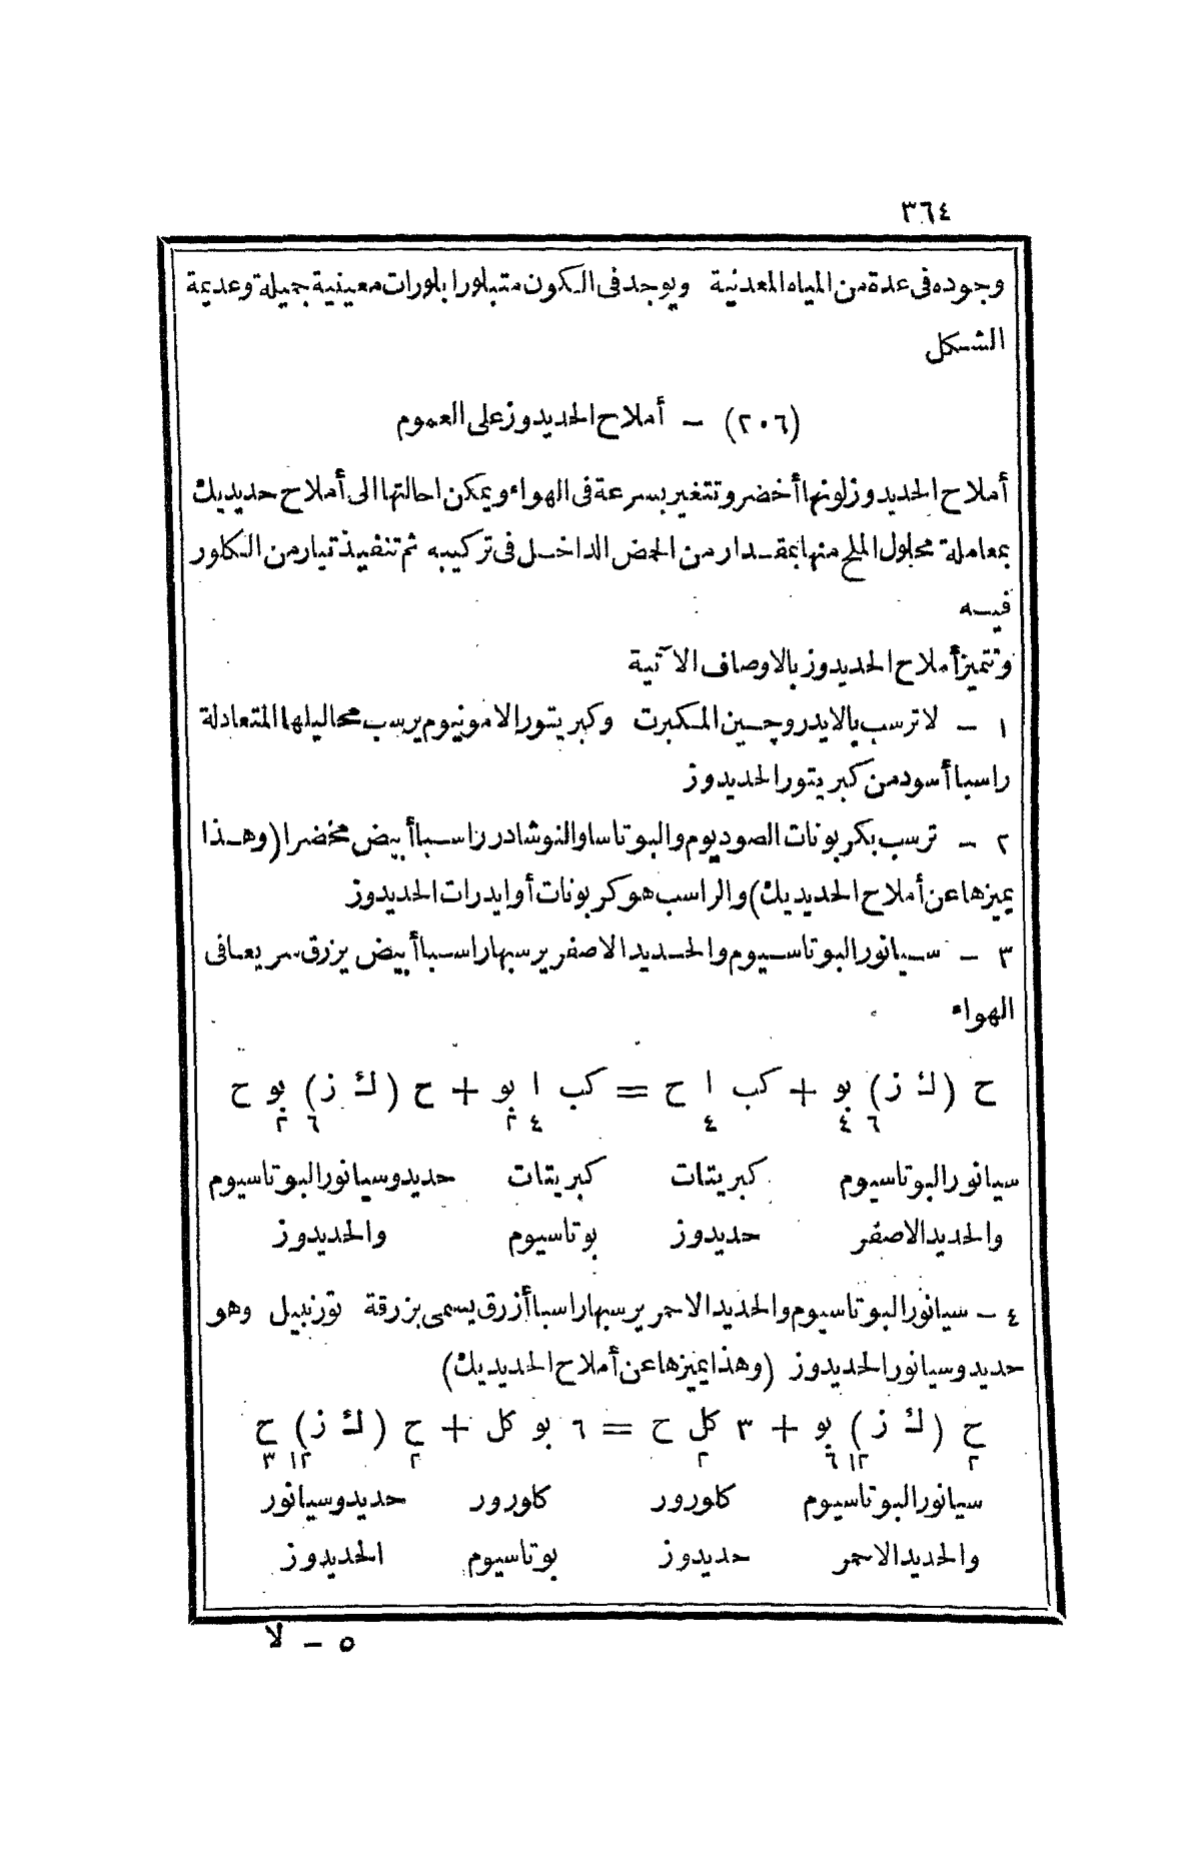 ٣٦٤
وجوده فى عدة من المياه المعدنية ويوجد فى الكون متبلورا بلورات معينية جميلة وعديمة
الشكل
(٢٠٦) – أملاح الحديدوز على العموم
أملاح الحديدوز لونها أخضر وتتغير بسرعة فى الهواء ويمكن احالتها الى أملاح حديديك
بمعاملة محلول الملح منها بمقدار من الحمض الداخل فى تركيبه ثم تنفيذ تيار من الكلور
فيه
وتتميز أملاح الحديدوز بالاوصاف الآتية
١ – لا ترسب بالايدروچين المكبرت وكبريتور الامونيوم يرسب محاليلها المتعادلة
راسبا أسود من كبريتور الحديدوز
٢ – ترسب بكربونات الصوديوم والبوتاسا والنوشادر راسبا أبيض مخضرا (وهذا
يميزها عن أملاح الحديديك) والراسب هو كربونات أو ايدرات الحديدوز
٣ – سيانور البوتاسيوم والحديد الاصفر يرسبها راسبا أبيض يزرق سريعا فى
الهواء
ح (ك ز) بو + كب ا ح = كب ا بو + ح (ك ز) بو ح
٦ ٤ ٤ ٤ ٢ ٦ ٢
سيانور البوتاسيوم كبريتات كبريتات حديدوسيانور البوتاسيوم
والحديد الاصفر حديدوز بوتاسيوم والحديدوز
٤ – سيانور البوتاسيوم والحديد الاحمر يرسبها راسبا أزرق يسمى بزرقة تورنبيل وهو
حديدوسيانور الحديدوز (وهذا يميزها عن أملاح الحديديك)
ح (ك ز) بو + ٣ كل ح = ٦ بو كل + ح (ك ز) ح
٢ ١٢ ٦ ٢ ٢ ١٢ ٣
سيانور البوتاسيوم كلورور كلورور حديدوسيانور
والحديد الاحمر حديدوز بوتاسيوم الحديدوز
٥ – لا